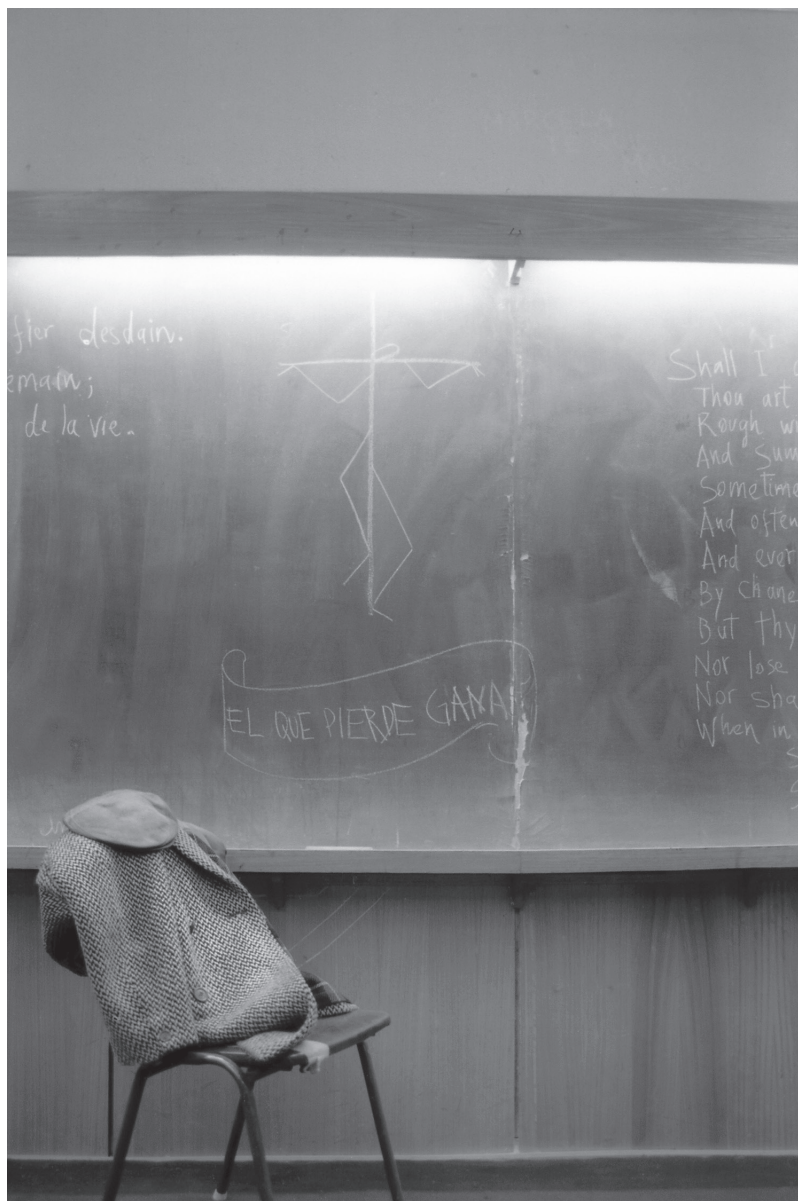 fier desdain.
emain;
de la vie.
EL QUE PIERDE GANA
Shall I
Thou art
Rough
And Sum
Sometime
And often
And ever
By Chanc
But thy
Nor lose
Nor sha
When in